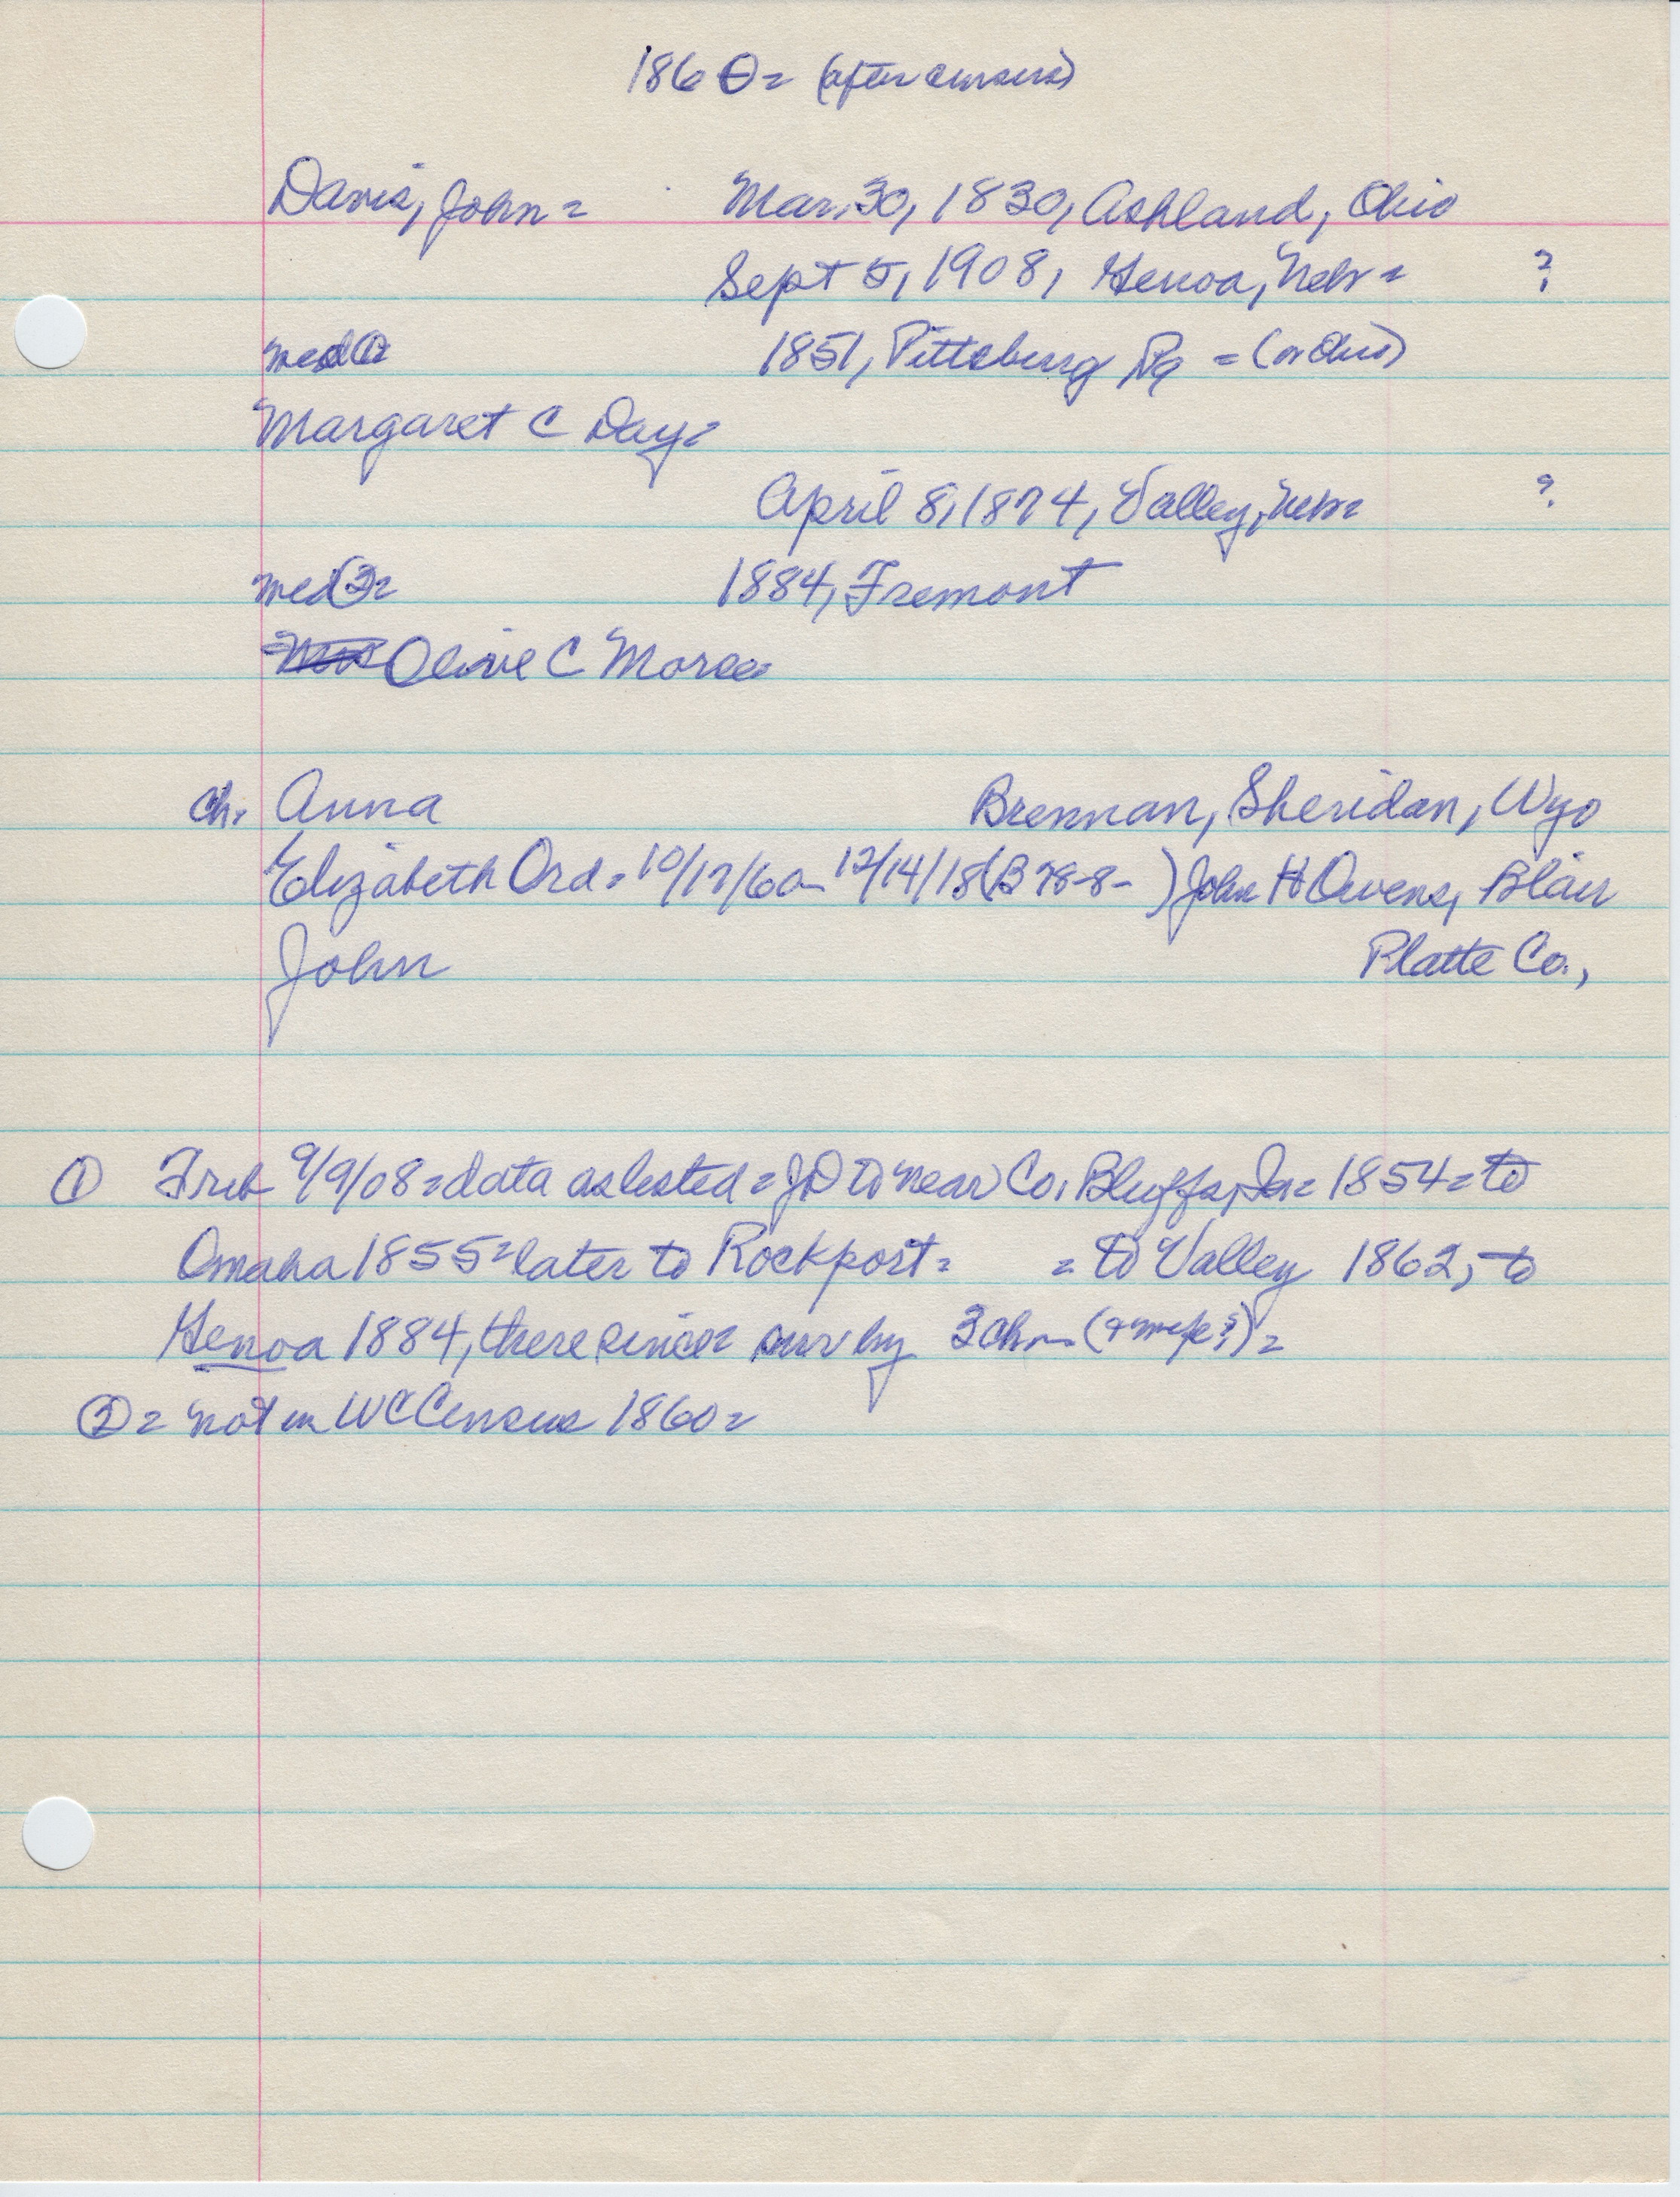 1860= (after census)
Davis, John= Mar. 30, 1830, Ashland, Ohio
Sept 5, 1908, Genoa, Nebr= ?
med ① 1851, Pittsburg Pa = (or Ohio)
Margaret C Day=
April 8, 1874, Valley, Nebr= ?
med ②= 1884, Fremont
Olive C Morse
ch. Anna Brennan, Sheridan, Wyo
Elizabeth Ord= 10/17/60- 12/14/18 (B 788- ) John H Owens, Blair
John Platte Co.,
① Trib 9/9/08=data as listed=JD to near Co. Bluffs, Ia= 1854= to
Omaha 1855=later to Rockport= = to Valley 1862, to
Genoa 1884, there since= surv by 3 ch
②= not in WC Census 1860=